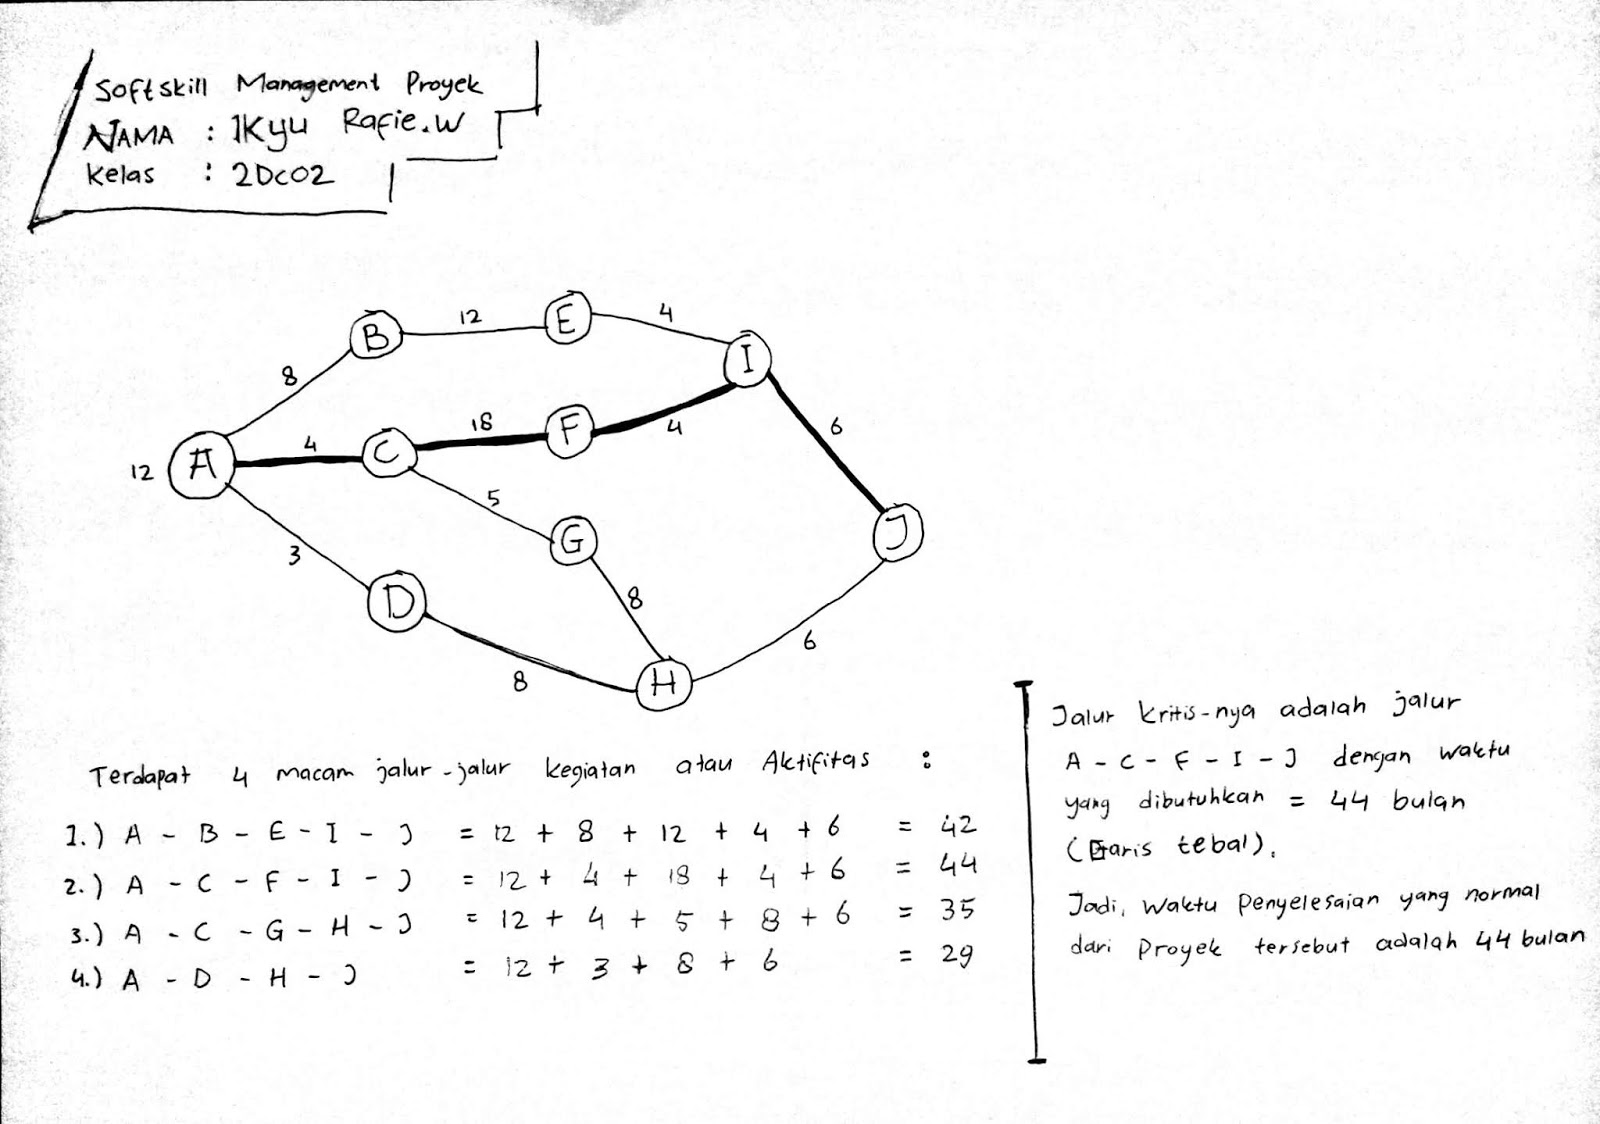 Softskill Management Proyek
NAMA : IKyu Rafie.W
Kelas : 2DC02
B 12 E 4
I
8
18 F 4 6
12 A 4 C
5
G J
3
D 8
8 H 6
Terdapat 4 macam jalur-jalur kegiatan atau Aktifitas :
1.) A - B - E - I - J = 12 + 8 + 12 + 4 + 6 = 42
2.) A - C - F - I - J = 12 + 4 + 18 + 4 + 6 = 44
3.) A - C - G - H - J = 12 + 4 + 5 + 8 + 6 = 35
4.) A - D - H - J = 12 + 3 + 8 + 6 = 29
Jalur Kritis-nya adalah jalur
A - C - F - I - J dengan waktu
yang dibutuhkan = 44 bulan
(Garis tebal).
Jadi, waktu Penyelesaian yang normal
dari Proyek tersebut adalah 44 bulan